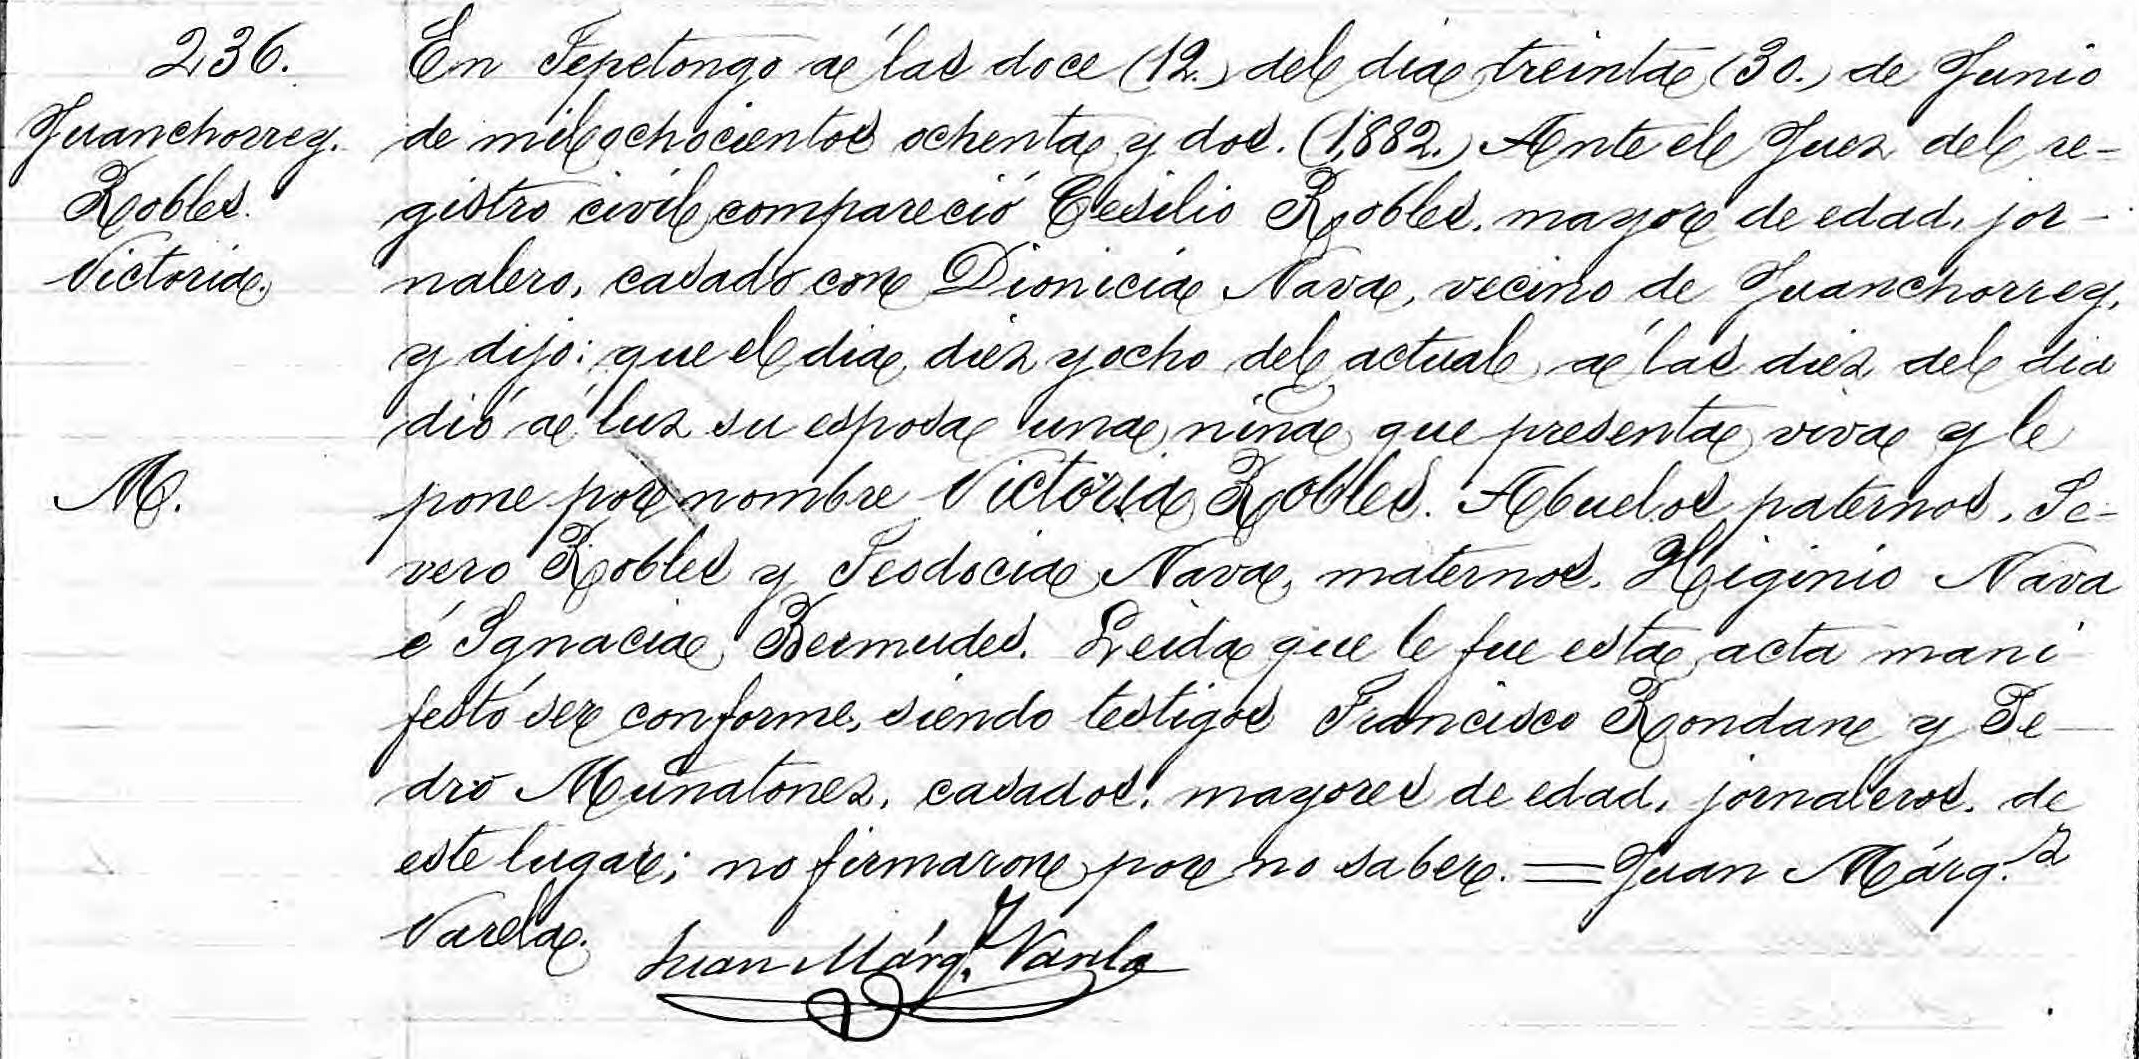 236.
Juanchorrey.
Robles.
Victoria.
M.
En Tepetongo á las doce (12.) del dia treinta (30.) de Junio
de mil ochocientos ochenta y dos. (1,882.) Ante el Juez del re-
gistro civil compareció Cesilio Robles, mayor de edad, jor-
nalero, casado con Dionicia Nava, vecino de Juanchorrey,
y dijo: que el dia diez y ocho del actual á las diez del dia
dió á luz su esposa una niña que presenta viva y le
pone por nombre Victoria Robles. Abuelos paternos, Se-
vero Robles y Teodocia Nava, maternos, Higinio Nava
é Ignacia Bermudes. Leida que le fue esta acta mani
festó ser conforme, siendo testigos Francisco Rondan y Pe-
dro Muñatones, casados, mayores de edad, jornaleros, de
este lugar; no firmaron por no saber. = Juan Márq.z
Varela.
Juan Márq.z Varela